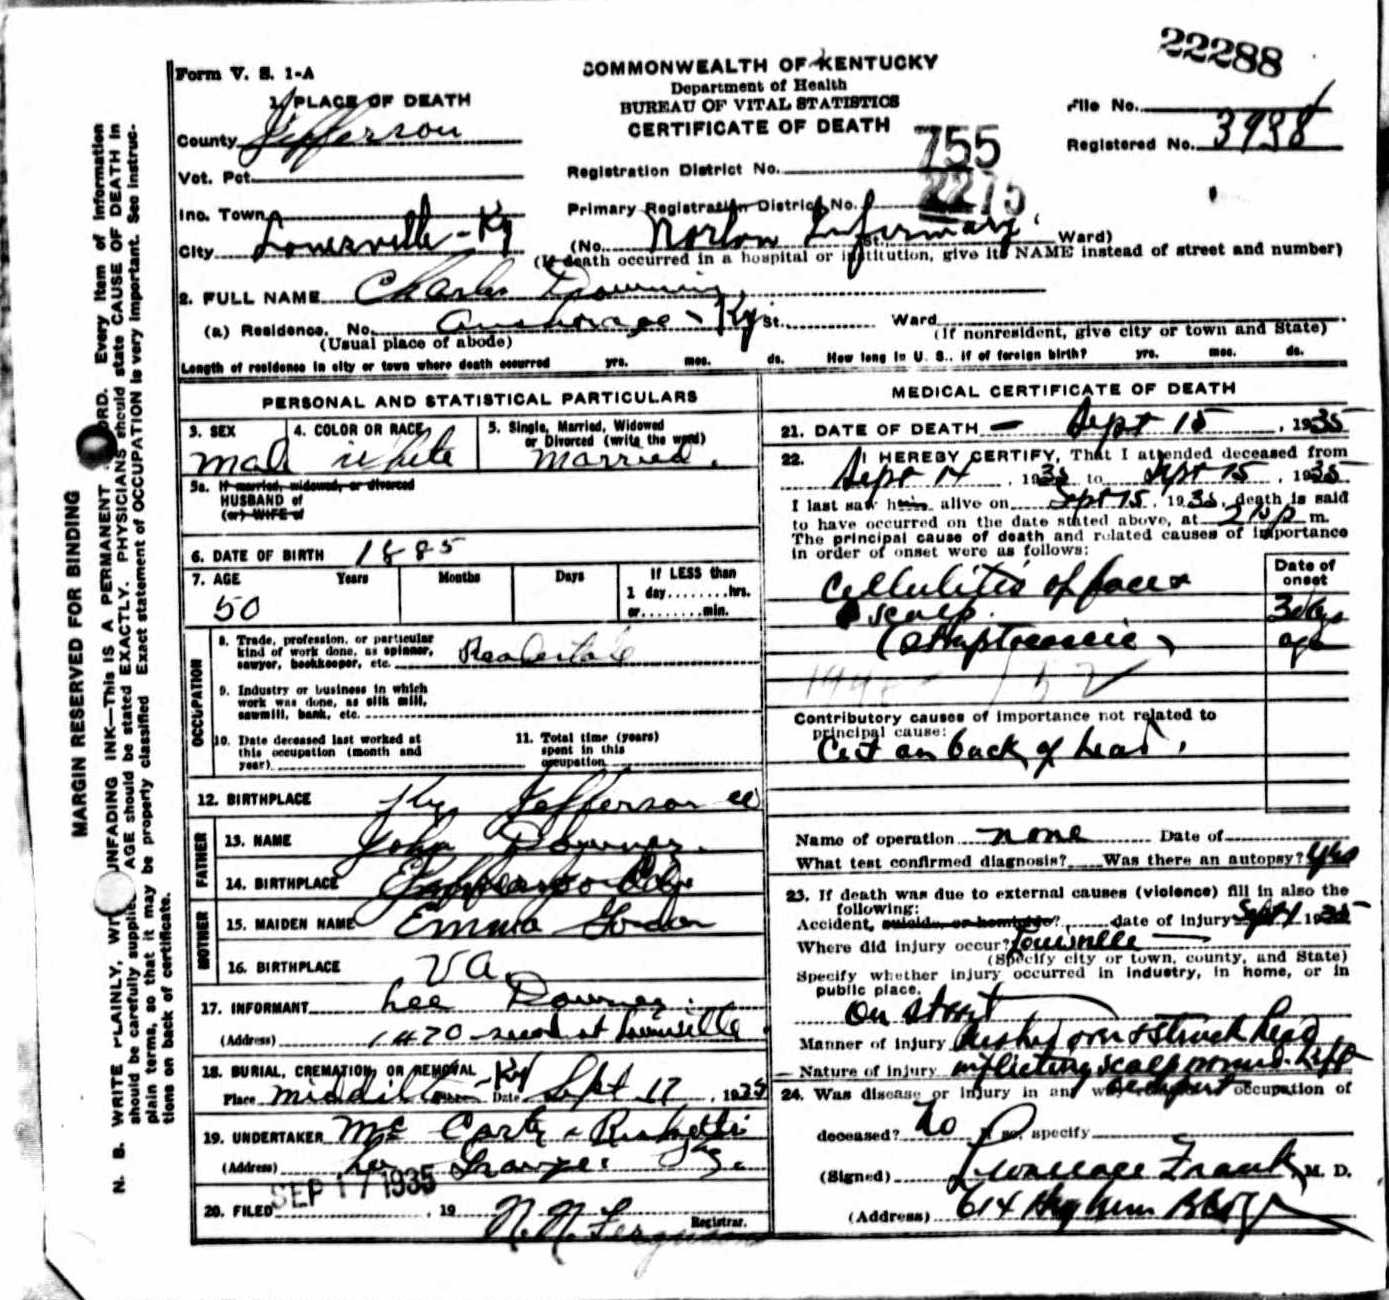 22288
Form V. S. 1-A
COMMONWEALTH OF KENTUCKY
Department of Health
BUREAU OF VITAL STATISTICS
CERTIFICATE OF DEATH
File No. 1
Registered No. 3938
1. PLACE OF DEATH
County Jefferson
Vot. Pct.
Inc. Town
City Louisville - Ky
Registration District No. 755
Primary Registration District No. 2275
(No. Norton Infirmary St., Ward)
(If death occurred in a hospital or institution, give its NAME instead of street and number)
2. FULL NAME Charles
(a) Residence. No. Anchorage - Ky St. Ward
(Usual place of abode)
(If nonresident, give city or town and State)
Length of residence in city or town where death occurred yrs. mos. ds. How long in U. S., if of foreign birth? yrs. mos. ds.
PERSONAL AND STATISTICAL PARTICULARS
3. SEX
4. COLOR OR RACE
5. Single, Married, Widowed
or Divorced (write the word)
Male White Married.
5a. If married, widowed, or divorced
HUSBAND of
(or) WIFE of
6. DATE OF BIRTH 1885
7. AGE Years Months Days If LESS than
1 day........hrs.
or........min.
50
OCCUPATION
8. Trade, profession, or particular
kind of work done, as spinner,
sawyer, bookkeeper, etc. Real estate
9. Industry or business in which
work was done, as silk mill,
sawmill, bank, etc.
10. Date deceased last worked at
this occupation (month and
year)
11. Total time (years)
spent in this
occupation
12. BIRTHPLACE Ky Jefferson co
FATHER
13. NAME John
14. BIRTHPLACE
MOTHER
15. MAIDEN NAME Emma Gordon
16. BIRTHPLACE Va.
17. INFORMANT Lee
(Address) 1470 - second st Louisville
18. BURIAL, CREMATION, OR REMOVAL
Place Date Sept 17, 1935
19. UNDERTAKER
(Address)
SEP 17 1935
20. FILED , 19 N. N. Ferguson
Registrar.
MEDICAL CERTIFICATE OF DEATH
21. DATE OF DEATH - Sept 15, 1935
22. I HEREBY CERTIFY, That I attended deceased from
Sept 14, 1935 to Sept 15, 1935
I last saw him alive on Sept 15, 1935, death is said
to have occurred on the date stated above, at m.
The principal cause of death and related causes of importance
in order of onset were as follows:
Date of
onset
Cellulitis of face &
scalp. 3 days
(streptococcic) ago
Contributory causes of importance not related to
principal cause:
Cut on back of head.
Name of operation none Date of
What test confirmed diagnosis? Was there an autopsy? yes
23. If death was due to external causes (violence) fill in also the
following:
Accident, suicide, or homicide? date of injury Sept 1 1935
Where did injury occur? Louisville
(Specify city or town, county, and State)
Specify whether injury occurred in industry, in home, or in
public place.
On street
Manner of injury struck head
Nature of injury inflicting scalp wound.
24. Was disease or injury in any way occupation of
deceased? No If so, specify
(Signed) L Wallace Frank, M. D.
(Address) 614 Heyburn Bldg
MARGIN RESERVED FOR BINDING
N. B. WRITE PLAINLY, WITH UNFADING INK—This is A PERMANENT RECORD. Every item of information
should be carefully supplied. AGE should be stated EXACTLY. PHYSICIANS should state CAUSE OF DEATH in
plain terms, so that it may be properly classified. Exact statement of OCCUPATION is very important. See instruc-
tions on back of certificate.